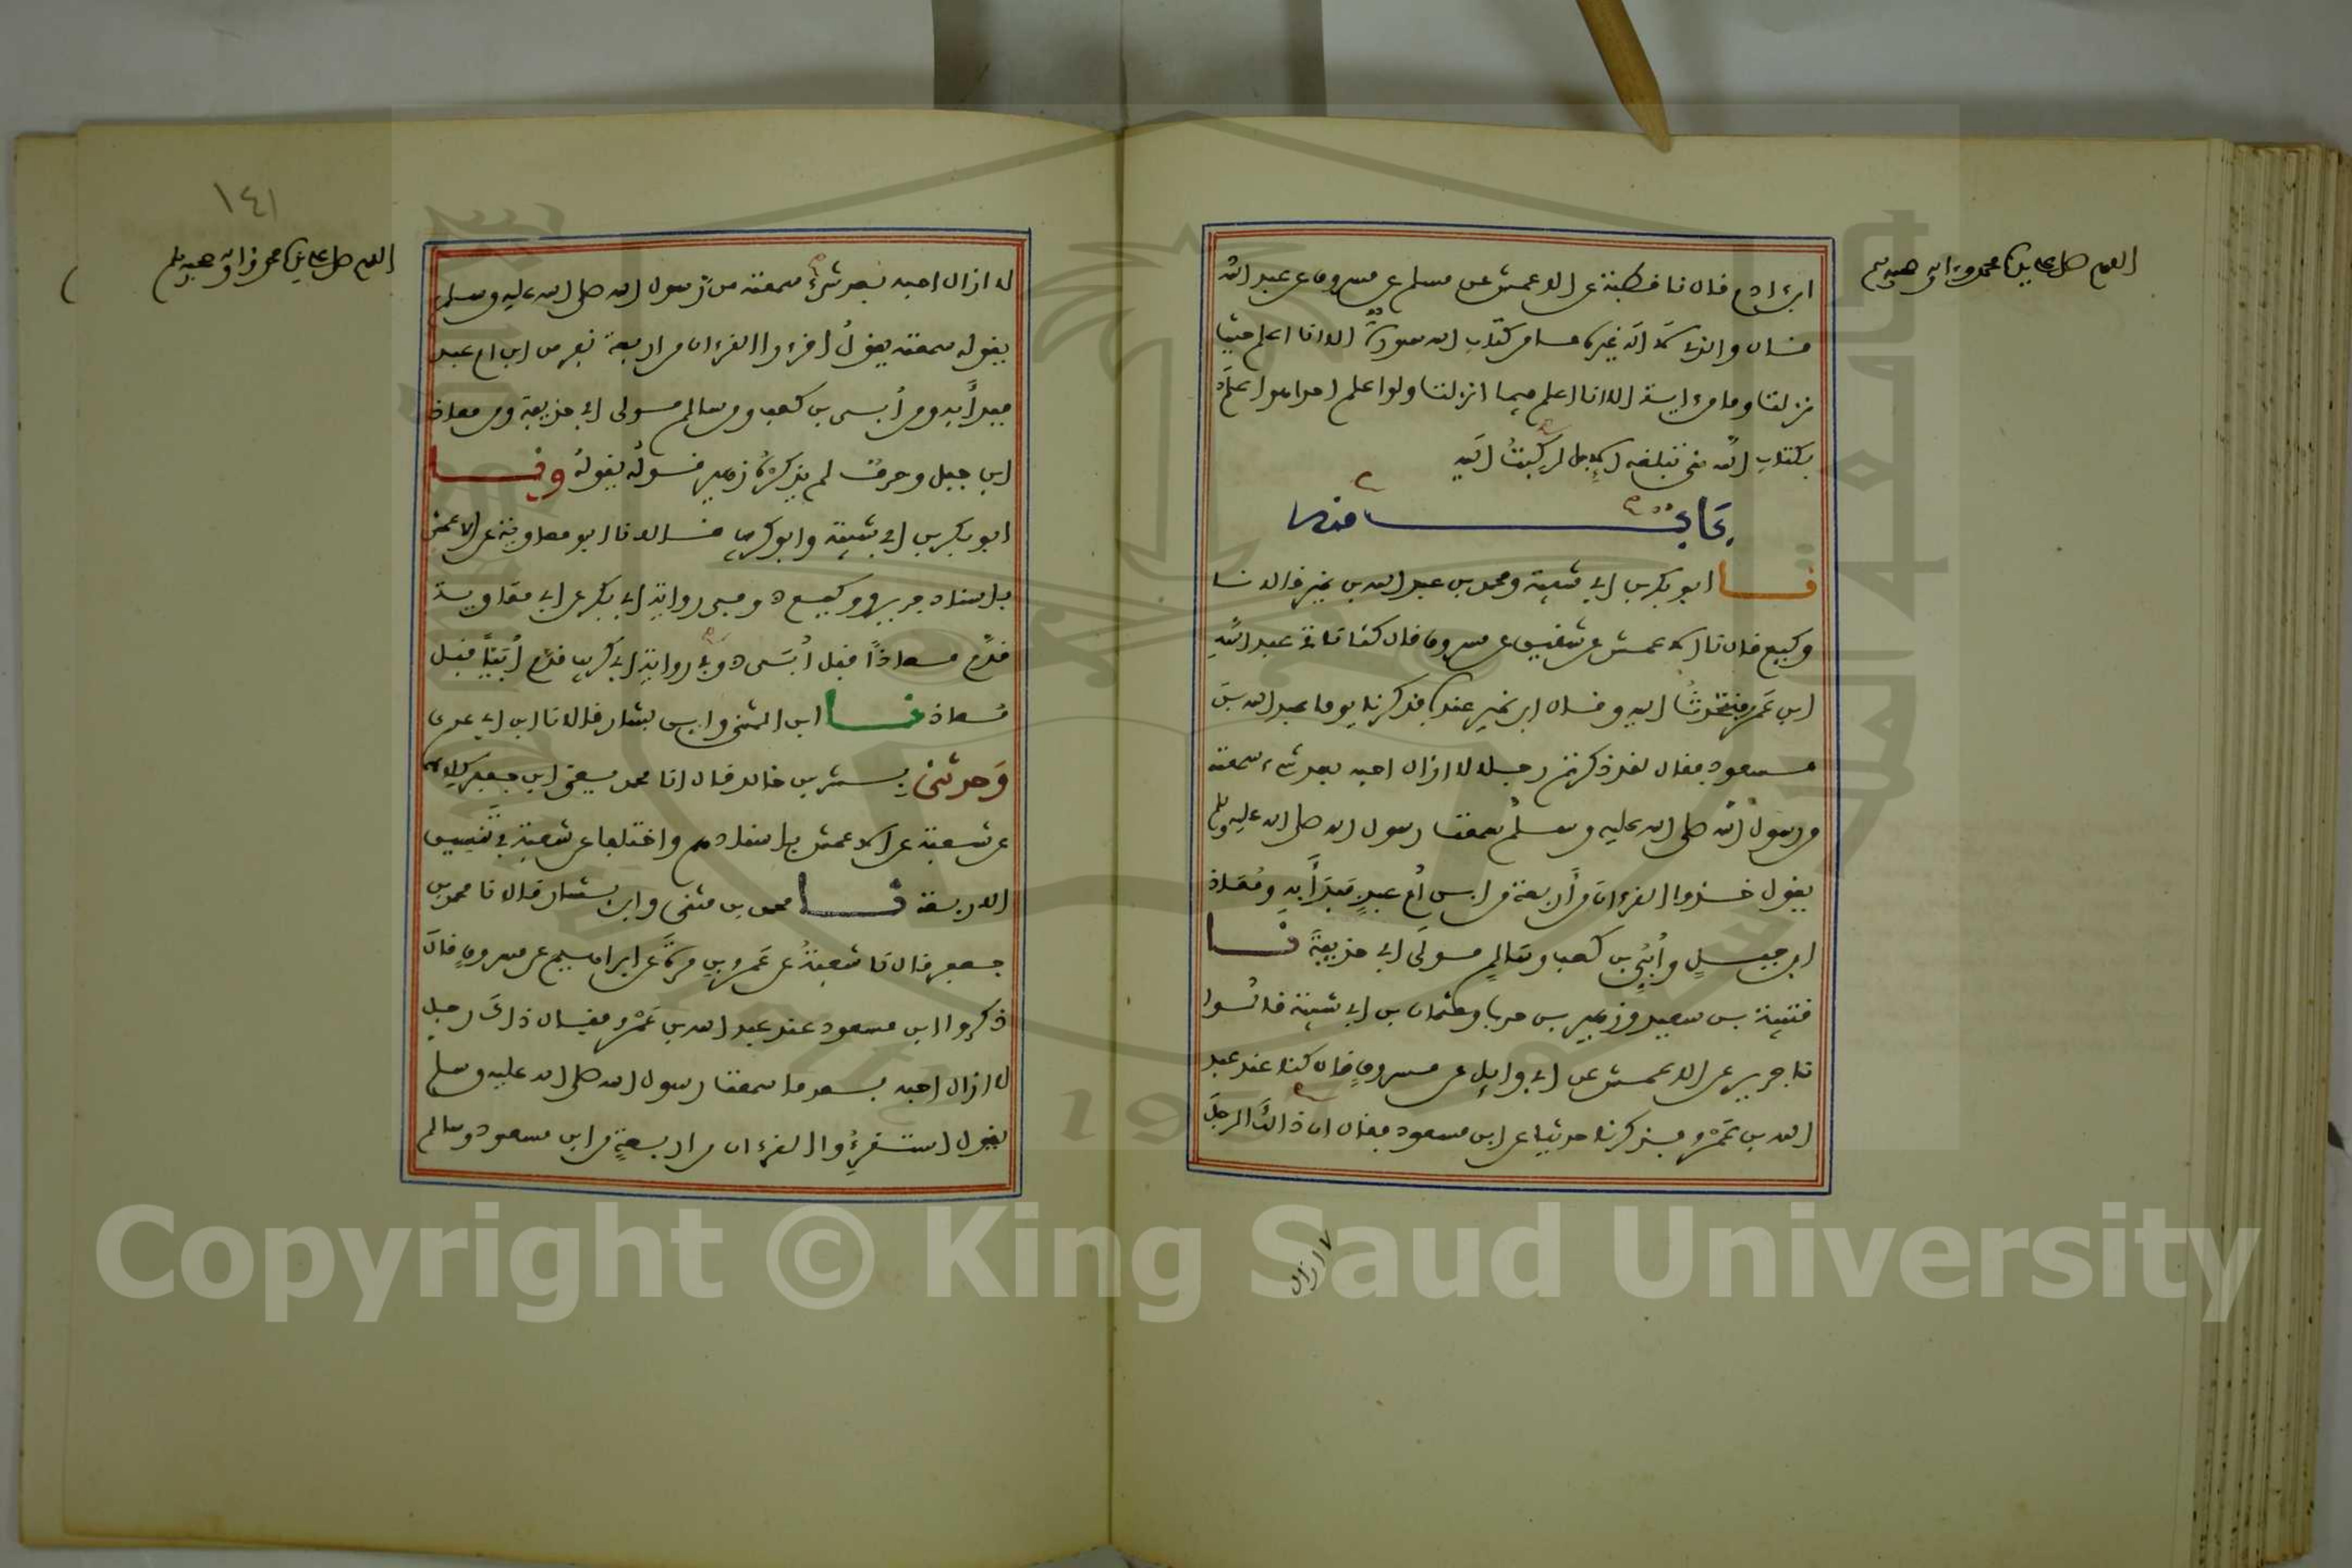 اللهم صل على سيدنا محمد وءاله وصحبه وسلم
ابن ءادم قال نا قطبة عن الاعمش عن مسلم عن مسروق عن عبد الله
قال والذي لا اله غيره ما من كتاب الله سورة الا انا اعلم حيث
نزلت وما من ءاية الا انا اعلم فيما انزلت ولو اعلم احدا هو اعلم
بكتاب الله مني تبلغه الابل لركبت اليه
باب منه
نا ابو بكر بن ابي شيبة ومحمد بن عبد الله بن نمير قالا نا
وكيع قال نا الاعمش عن شقيق عن مسروق قال كنا ناتي عبد الله
ابن عمرو فنتحدث اليه وقال ابن نمير عنده فذكرنا يوما عبد الله بن
مسعود فقال لقد ذكرتم رجلا لا ازال احبه بعد شيء سمعته
من رسول الله صلى الله عليه وسلم سمعت رسول الله صلى الله عليه وسلم
يقول خذوا القرءان من أربعة من ابن أم عبد فبدأ به ومعاذ
ابن جبل وأبي بن كعب وسالم مولى ابي حذيفة نا
قتيبة بن سعيد وزهير بن حرب وعثمان بن ابي شيبة قالوا
نا جرير عن الاعمش عن ابي وايل عن مسروق قال كنا عند عبد
الله بن عمرو فذكرنا حديثا عن ابن مسعود فقال ان ذاك الرجل
لا ازال
١٤١
اللهم صل على سيدنا محمد وءاله وصحبه وسلم
لا ازال احبه بعد شيء سمعته من رسول الله صلى الله عليه وسلم
يقوله سمعته يقول اقرءوا القرءان من اربعة نفر من ابن ام عبد
فبدأ به ومن أبي بن كعب ومن سالم مولى ابي حذيفة ومن معاذ
ابن جبل وحرف لم يذكره زهير قوله يقوله ونا
ابو بكر بن ابي شيبة وابو كريب قالا نا ابو معاوية عن الاعمش
باسناد جرير ووكيع وفي رواية ابي بكر عن ابي معاوية
قدم معاذا قبل أبي وفي رواية ابي كريب قدم أبيا قبل
معاذ نا ابن المثنى وابن بشار قالا نا ابن ابي عدي
وحدثني بشر بن خالد قال انا محمد يعني ابن جعفر كلاهما
عن شعبة عن الاعمش باسنادهم واختلفا عن شعبة في تنسيق
الاربعة نا محمد بن مثنى وابن بشار قالا نا محمد بن
جعفر قال نا شعبة عن عمرو بن مرة عن ابراهيم عن مسروق قال
ذكروا ابن مسعود عند عبد الله بن عمرو فقال ذاك رجل
لا ازال احبه بعد ما سمعت رسول الله صلى الله عليه وسلم
يقول استقرءوا القرءان من اربعة من ابن مسعود وسالم
Copyright © King Saud University